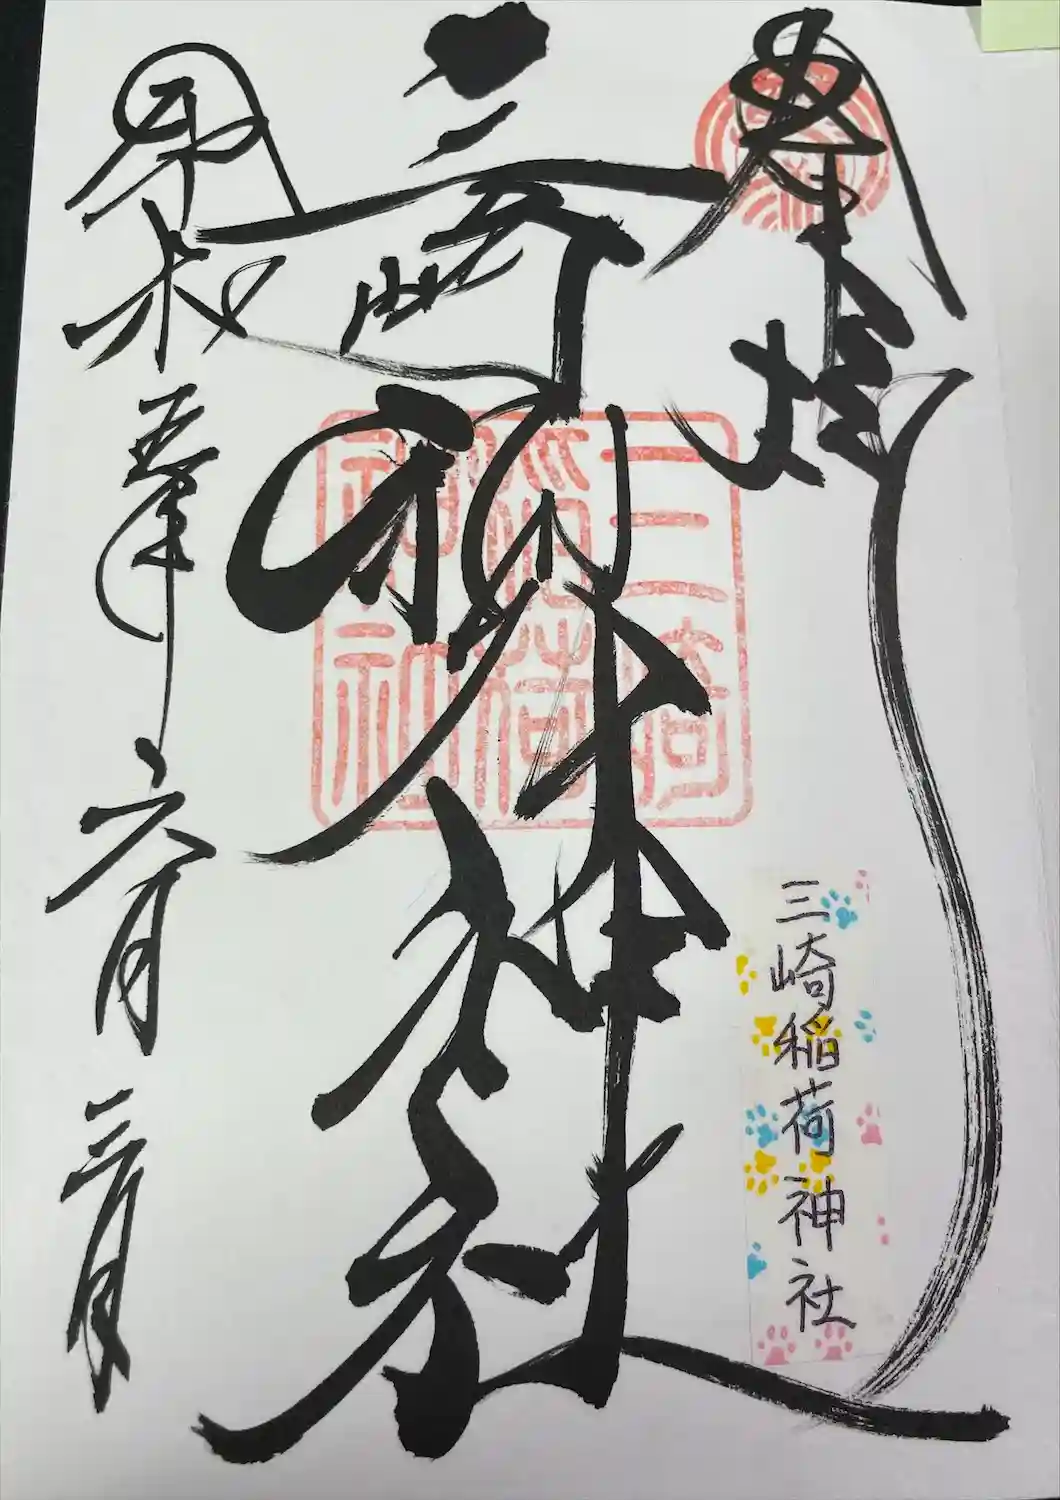 奉拝
三崎稲荷神社
三崎稲荷神社
三崎稲荷神社
令和五年六月三日